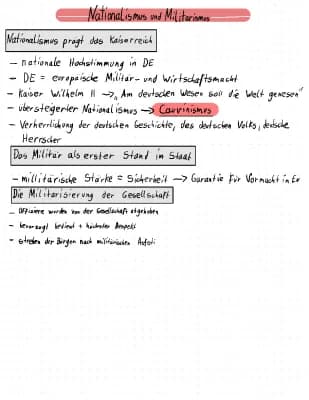 Nationalismus und Militarismus
Nationalismus prägt das Kaiserreich
– nationale Hochstimmung in DE
– DE = europäische Militär- und Wirtschaftsmacht
– Kaiser Wilhelm II → „Am deutschen Wesen soll die Welt genesen"
– übersteigerter Nationalismus → Cauvinismus
– Verherrlichung der deutschen Geschichte, des deutschen Volks, deutsche
Herrscher
Das Militär als erster Stand im Staat
– millitärische Stärke = Sicherheit → Garantie für Vormacht in Eu
Die Militarisierung der Gesellschaft
– Offiziere wurden von der Gesellschaft
– bevorzugt bedient + höchster Respekt
– streben der Bürger nach militärischen